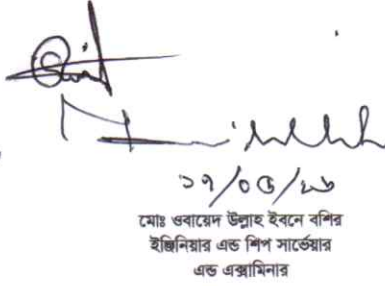 ১৭/০৫/২৬
মোঃ ওবায়েদ উল্লাহ ইবনে বশির
ইঞ্জিনিয়ার এন্ড শিপ সার্ভেয়ার
এন্ড এক্সামিনার